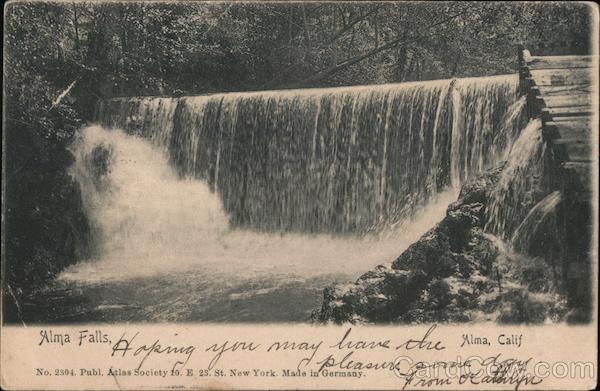 Alma Falls,
Alma, Calif
Hoping you may have the
pleasure
No. 2304. Publ. Atlas Society 10. E 23. St. New York. Made in Germany.
day
From Kathryn
CardCow.com